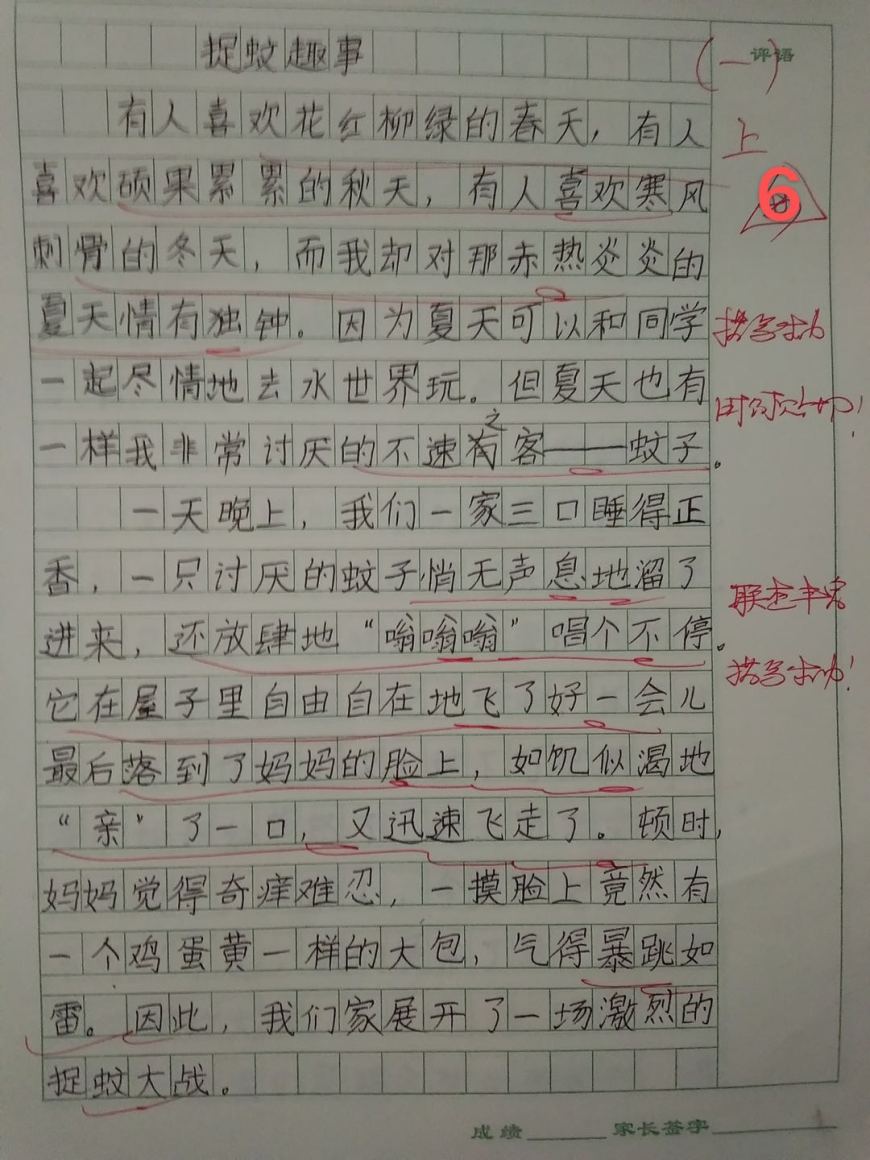 捉蚊趣事
(一)
评语
有人喜欢花红柳绿的春天，有人
上
喜欢硕果累累的秋天，有人喜欢寒风
6
刺骨的冬天，而我却对那赤热炎炎的
夏天情有独钟。因为夏天可以和同学
描写生动
一起尽情地去水世界玩。但夏天也有
一样我非常讨厌的不速之客——蚊子。
一天晚上，我们一家三口睡得正
香，一只讨厌的蚊子悄无声息地溜了
进来，还放肆地“嗡嗡嗡”唱个不停。
它在屋子里自由自在地飞了好一会儿
描写生动！
最后落到了妈妈的脸上，如饥似渴地
“亲”了一口，又迅速飞走了。顿时，
妈妈觉得奇痒难忍，一摸脸上竟然有
一个鸡蛋黄一样的大包，气得暴跳如
雷。因此，我们家展开了一场激烈的
捉蚊大战。
成绩 家长签字